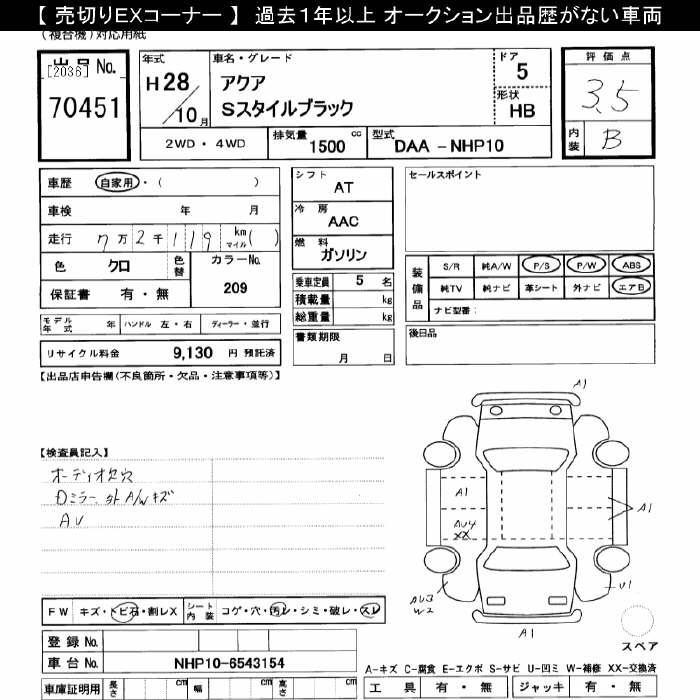 【 売切りEXコーナー 】 過去１年以上 オークション出品歴がない車両
(複合機)対応用紙
出品 No.
[2036]
70451
年式
H28
10月
車名・グレード
アクア
Sスタイルブラック
ドア
5
形状
HB
2WD・4WD
排気量
1500 cc
型式
DAA －NHP10
評価点
3.5
内装
B
車歴 自家用・( )
車検 年 月
走行 7万2千119 km マイル( )
色 クロ
色替
カラーNo.
209
保証書 有・無
モデル年式 年 ハンドル 左・右 ディーラー・並行
リサイクル料金 9,130 円 預託済
シフト
AT
冷房
AAC
燃料
ガソリン
乗車定員 5 名
積載量 kg
総重量 kg
書類期限
月 日
セールスポイント
装備品
S/R 純A/W P/S P/W ABS
純TV 純ナビ 革シート 外ナビ エアB
ナビ型番：
後日品
【出品店申告欄(不良箇所・欠品・注意事項等)】
【検査員記入】
オーディオ欠穴
Dミラー、外A/Wキズ
AU
A1
A1
AU4
XX
A1
AU3
W2
U1
A1
スペア
FW キズ・トビ石・割レX
シート内装 コゲ・穴・汚レ・シミ・破レ・スレ
登録 No.
車台 No. NHP10-6543154
車庫証明用 長さ cm 幅 cm 高さ cm
A-キズ C-腐食 E-エクボ S-サビ U-凹ミ W-補修 XX-交換済
工具 有・無 ジャッキ 有・無